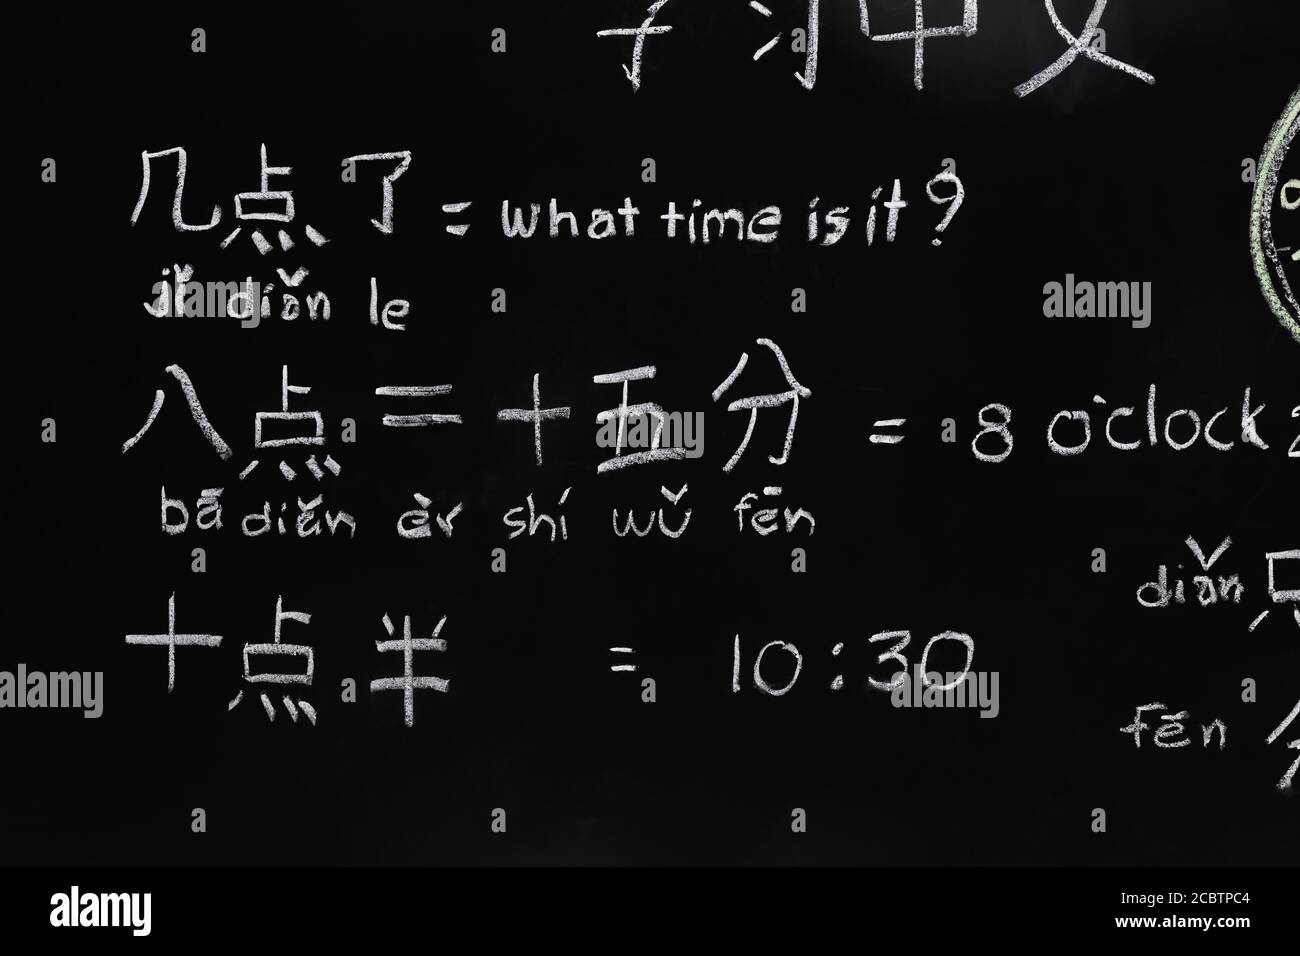 学习中文
几点了 = what time is it?
jǐ diǎn le
八点二十五分 = 8 o'clock
bā diǎn èr shí wǔ fēn
diǎn 点
十点半 = 10:30
fēn 分
alamy
Image ID: 2CBTPC4
www.alamy.com